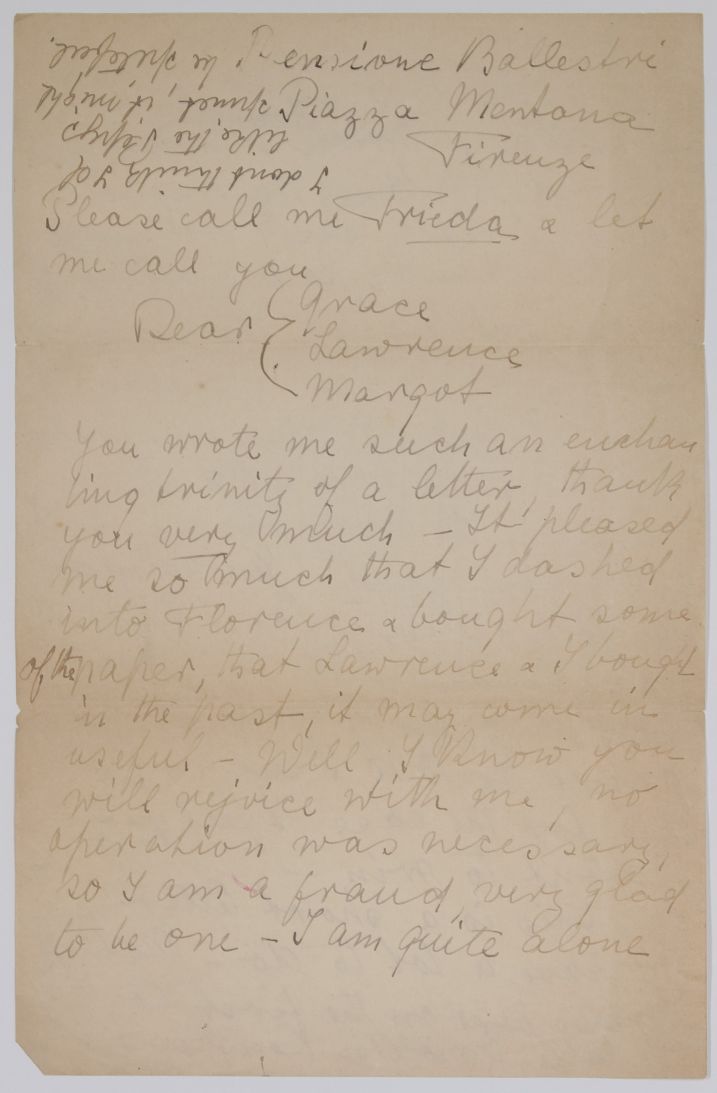 Pensione Ballestri
Piazza Mentana
Firenze
Please call me Frieda & let
me call you
Dear { Grace
Lawrence
Margot
You wrote me such an enchan
ting trinity of a letter, thank
you very much – It pleased
me so much that I dashed
into Florence & bought some
of the paper, that Lawrence & I bought
in the past, it may come in
useful – Well I know you
will rejoice with me, no
operation was necessary,
so I am a fraud, very glad
to be one – I am quite alone
I dont think I'd
like the
it might
be